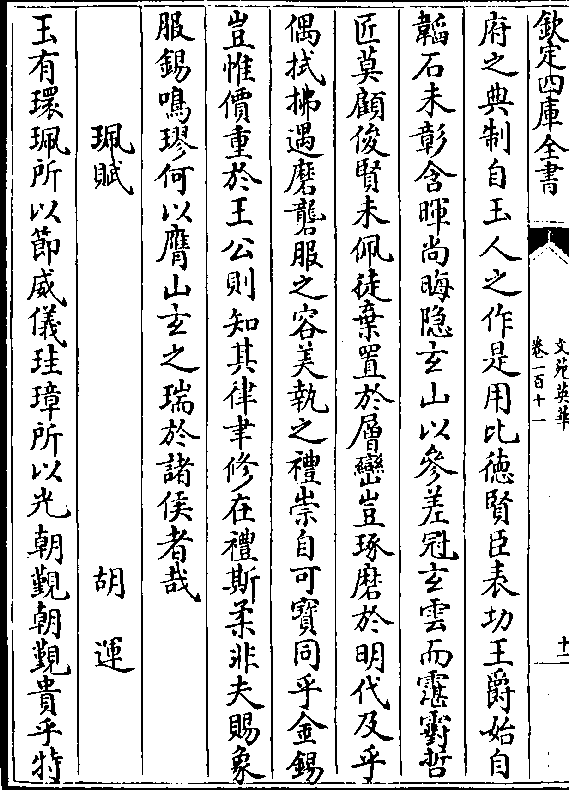 欽定四庫全書
文苑英華
卷一百十一
十一
府之典制自玉人之作是用比德賢臣表功王爵始自
韞石未彰含暉尚晦隐玄山以參差冠玄雲而靉霨哲
匠莫顧俊賢未佩徒棄置於層巒豈琢磨於明代及乎
偶拭拂遇磨礱服之容美執之禮崇自可寳同乎金錫
豈惟價重於王公則知其律聿修在禮斯柔非夫賜象
服錫鳴璆何以膺山玄之瑞於諸侯者哉
珮賦
胡運
玉有環珮所以節威儀珪璋所以光朝覲朝覲貴乎特